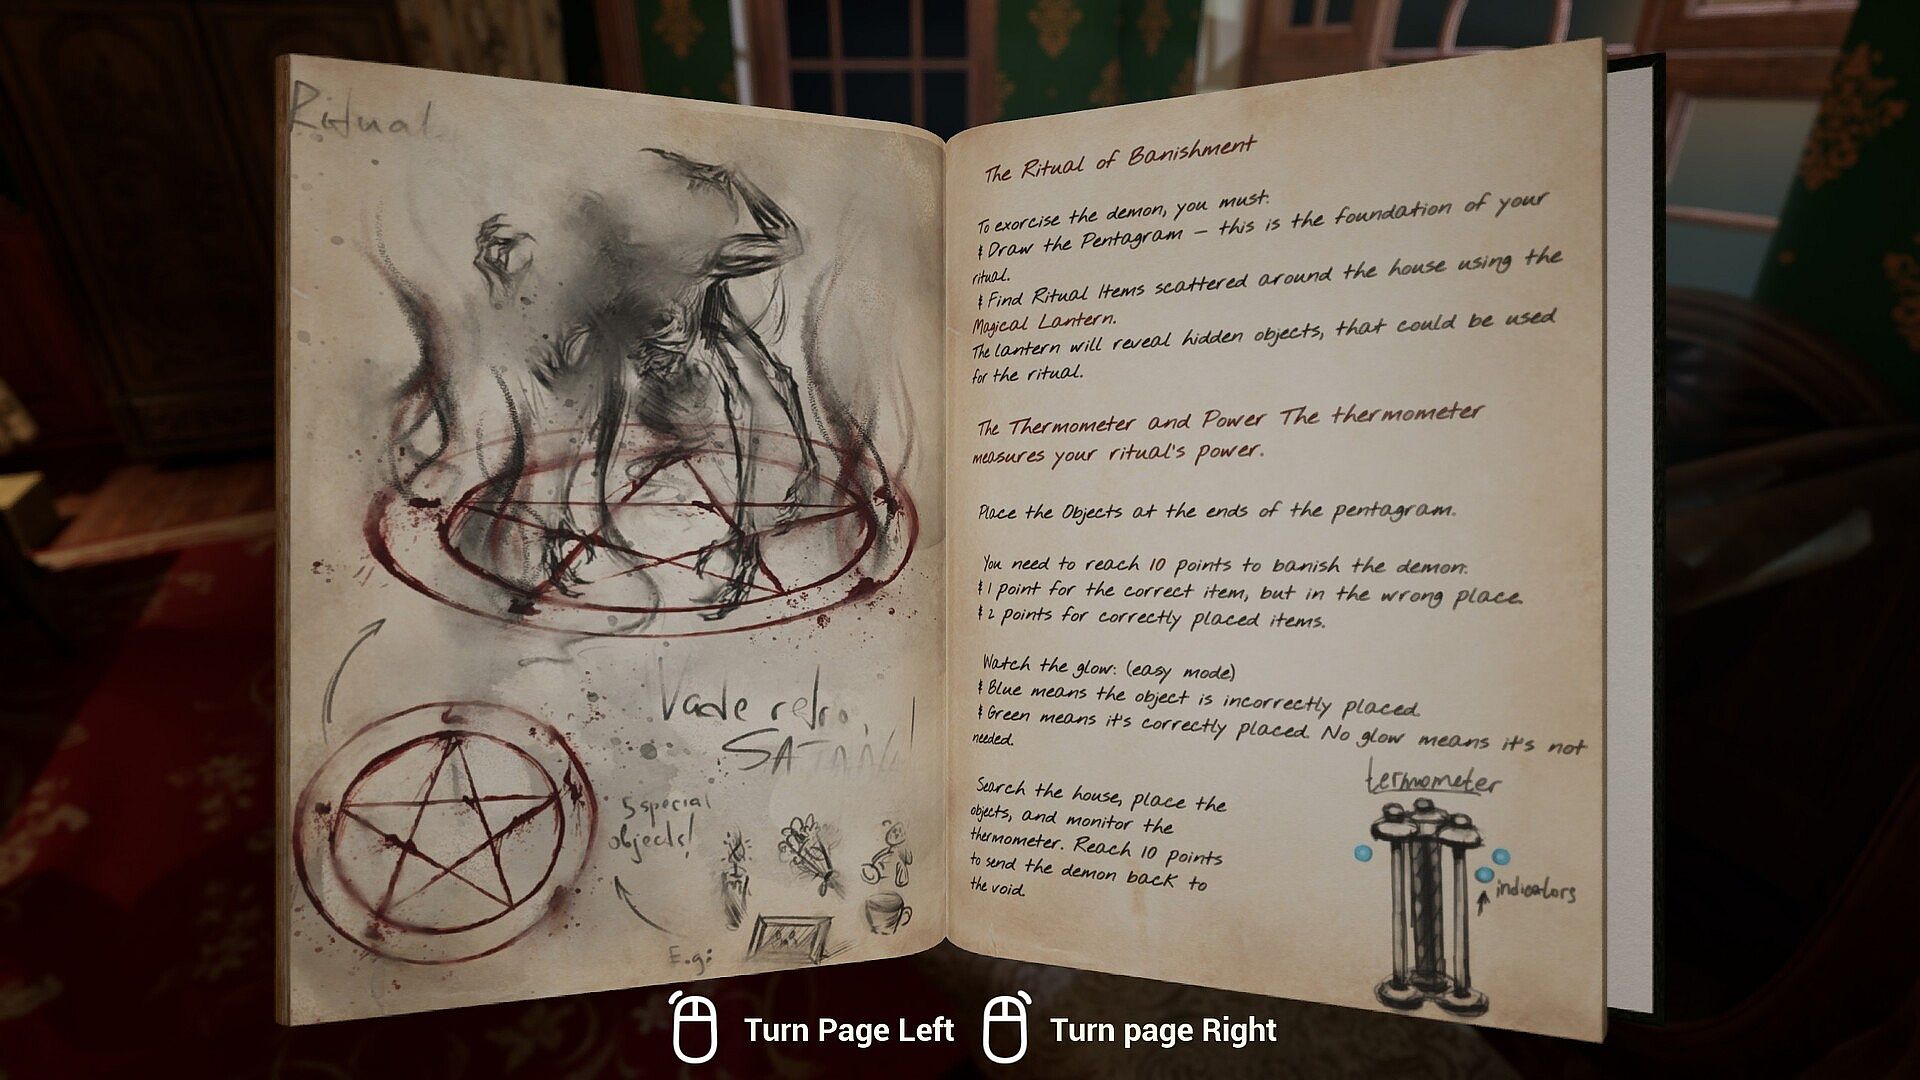 Ritual
Vade retro,
SATANA!
5 special
objects!
E.g:
The Ritual of Banishment
To exorcise the demon, you must:
Draw the Pentagram – this is the foundation of your
ritual.
Find Ritual Items scattered around the house using the
Magical Lantern.
The lantern will reveal hidden objects, that could be used
for the ritual.
The Thermometer and Power The thermometer
measures your ritual's power.
Place the Objects at the ends of the pentagram.
You need to reach 10 points to banish the demon:
1 point for the correct item, but in the wrong place.
2 points for correctly placed items.
Watch the glow: (easy mode)
Blue means the object is incorrectly placed.
Green means it's correctly placed. No glow means it's not
needed.
Search the house, place the
objects, and monitor the
thermometer. Reach 10 points
to send the demon back to
the void.
termometer
indicators
Turn Page Left
Turn page Right